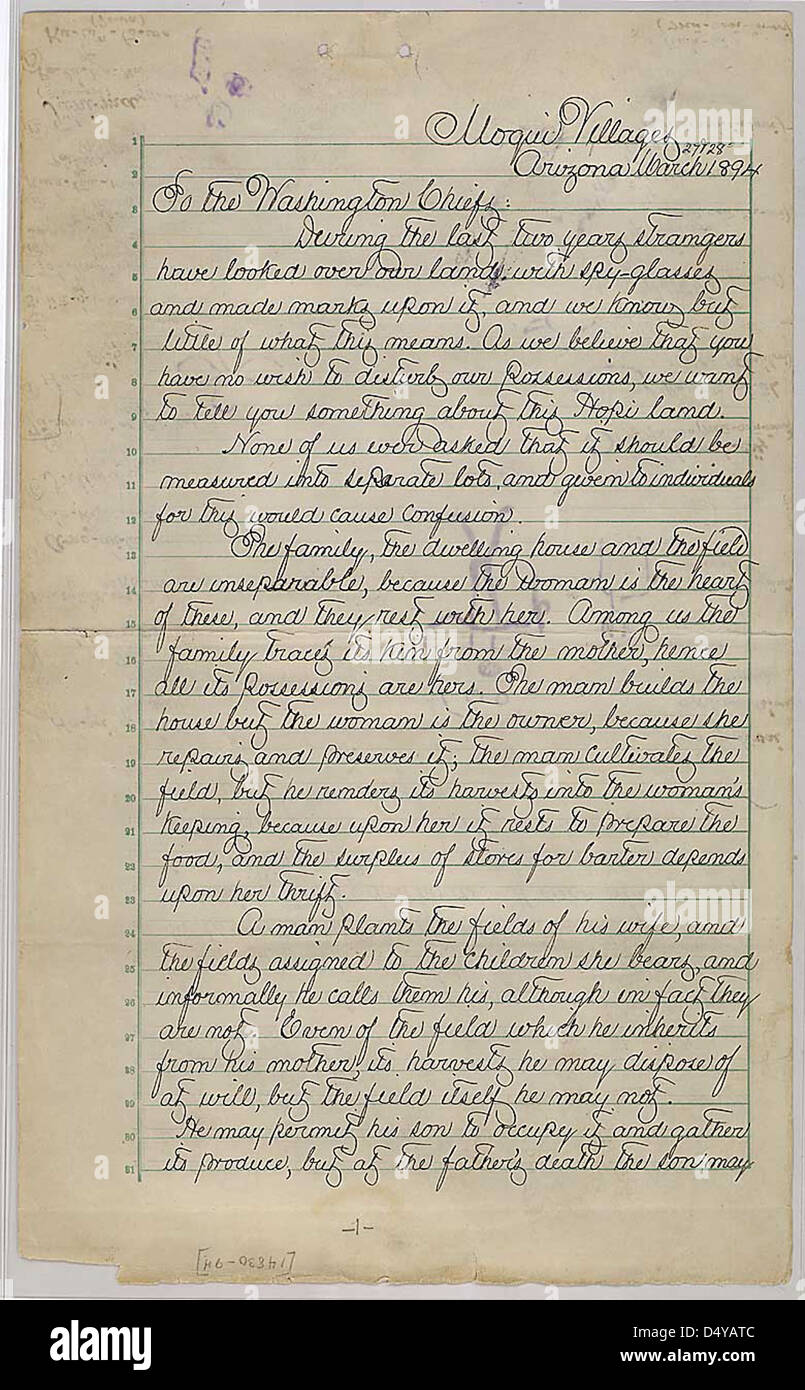 Moqui Villages
27&28
Arizona March 1894
To the Washington Chiefs:
During the last two years strangers
have looked over our land, with spy-glasses
and made marks upon it, and we know but
little of what this means. As we believe that you
have no wish to disturb our Possessions, we want
to tell you something about this Hopi land.
None of us ever asked that it should be
measured into separate lots, and given to individuals
for this would cause confusion.
The family, the dwelling house and the field
are inseparable, because the woman is the heart
of these, and they rest with her. Among us the
family traces its kin from the mother, hence
all its possessions are hers. The man builds the
house but the woman is the owner, because she
repairs and preserves it; the man cultivates the
field, but he renders its harvests into the woman's
keeping, because upon her it rests to prepare the
food, and the surplus of stores for barter depends
upon her thrift.
A man plants the fields of his wife, and
the fields assigned to the children she bears, and
informally he calls them his, although in fact they
are not. Even of the field which he inherits
from his mother, its harvests he may dispose of
at will, but the field itself he may not.
He may permit his son to occupy it and gather
its produce, but at the father's death the son may
-1-
[14830-94]
1
2
3
4
5
6
7
8
9
10
11
12
13
14
15
16
17
18
19
20
21
22
23
24
25
26
27
28
29
30
31
alamy
alamy
alamy
a
alamy
Image ID: D4YATC
www.alamy.com